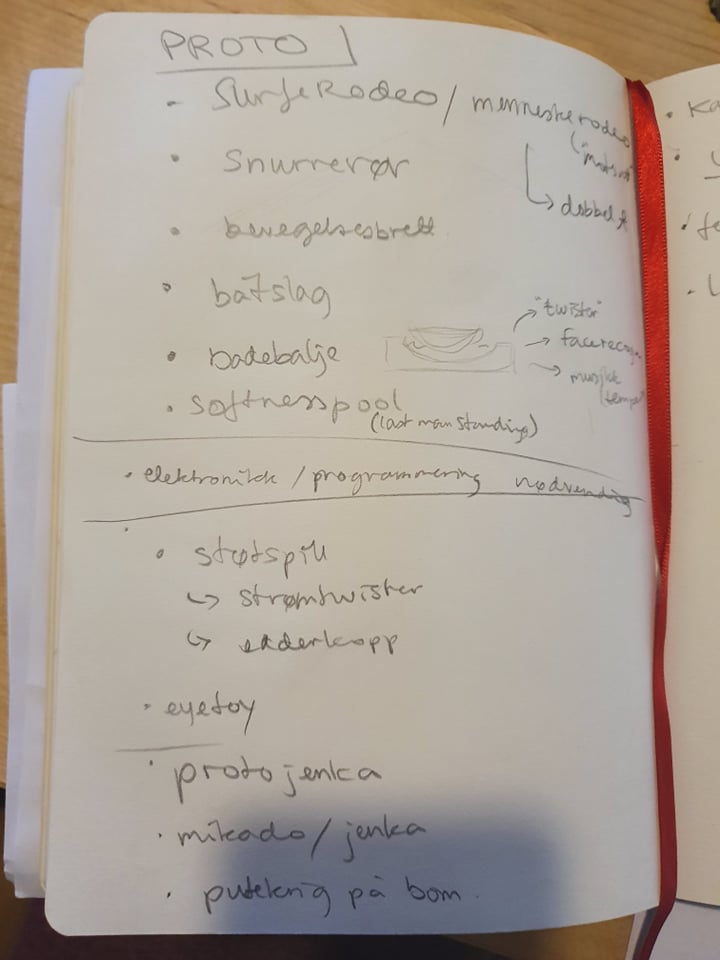 PROTO
- Surferodeo / menneskerodeo
→ dobbelt
• Snurrerør
• bevegelsesbrett
• båtslag
• badebalje
"twister"
→ facerecog
→ musikk
(tempo
• softnesspool
(last man standing)
• elektronikk / programmering nødvendig
• støtspill
↳ strømtwister
↳ edderkopp
• eyetoy
• proto jenka
• mikado / jenka
• putekrig på bom.